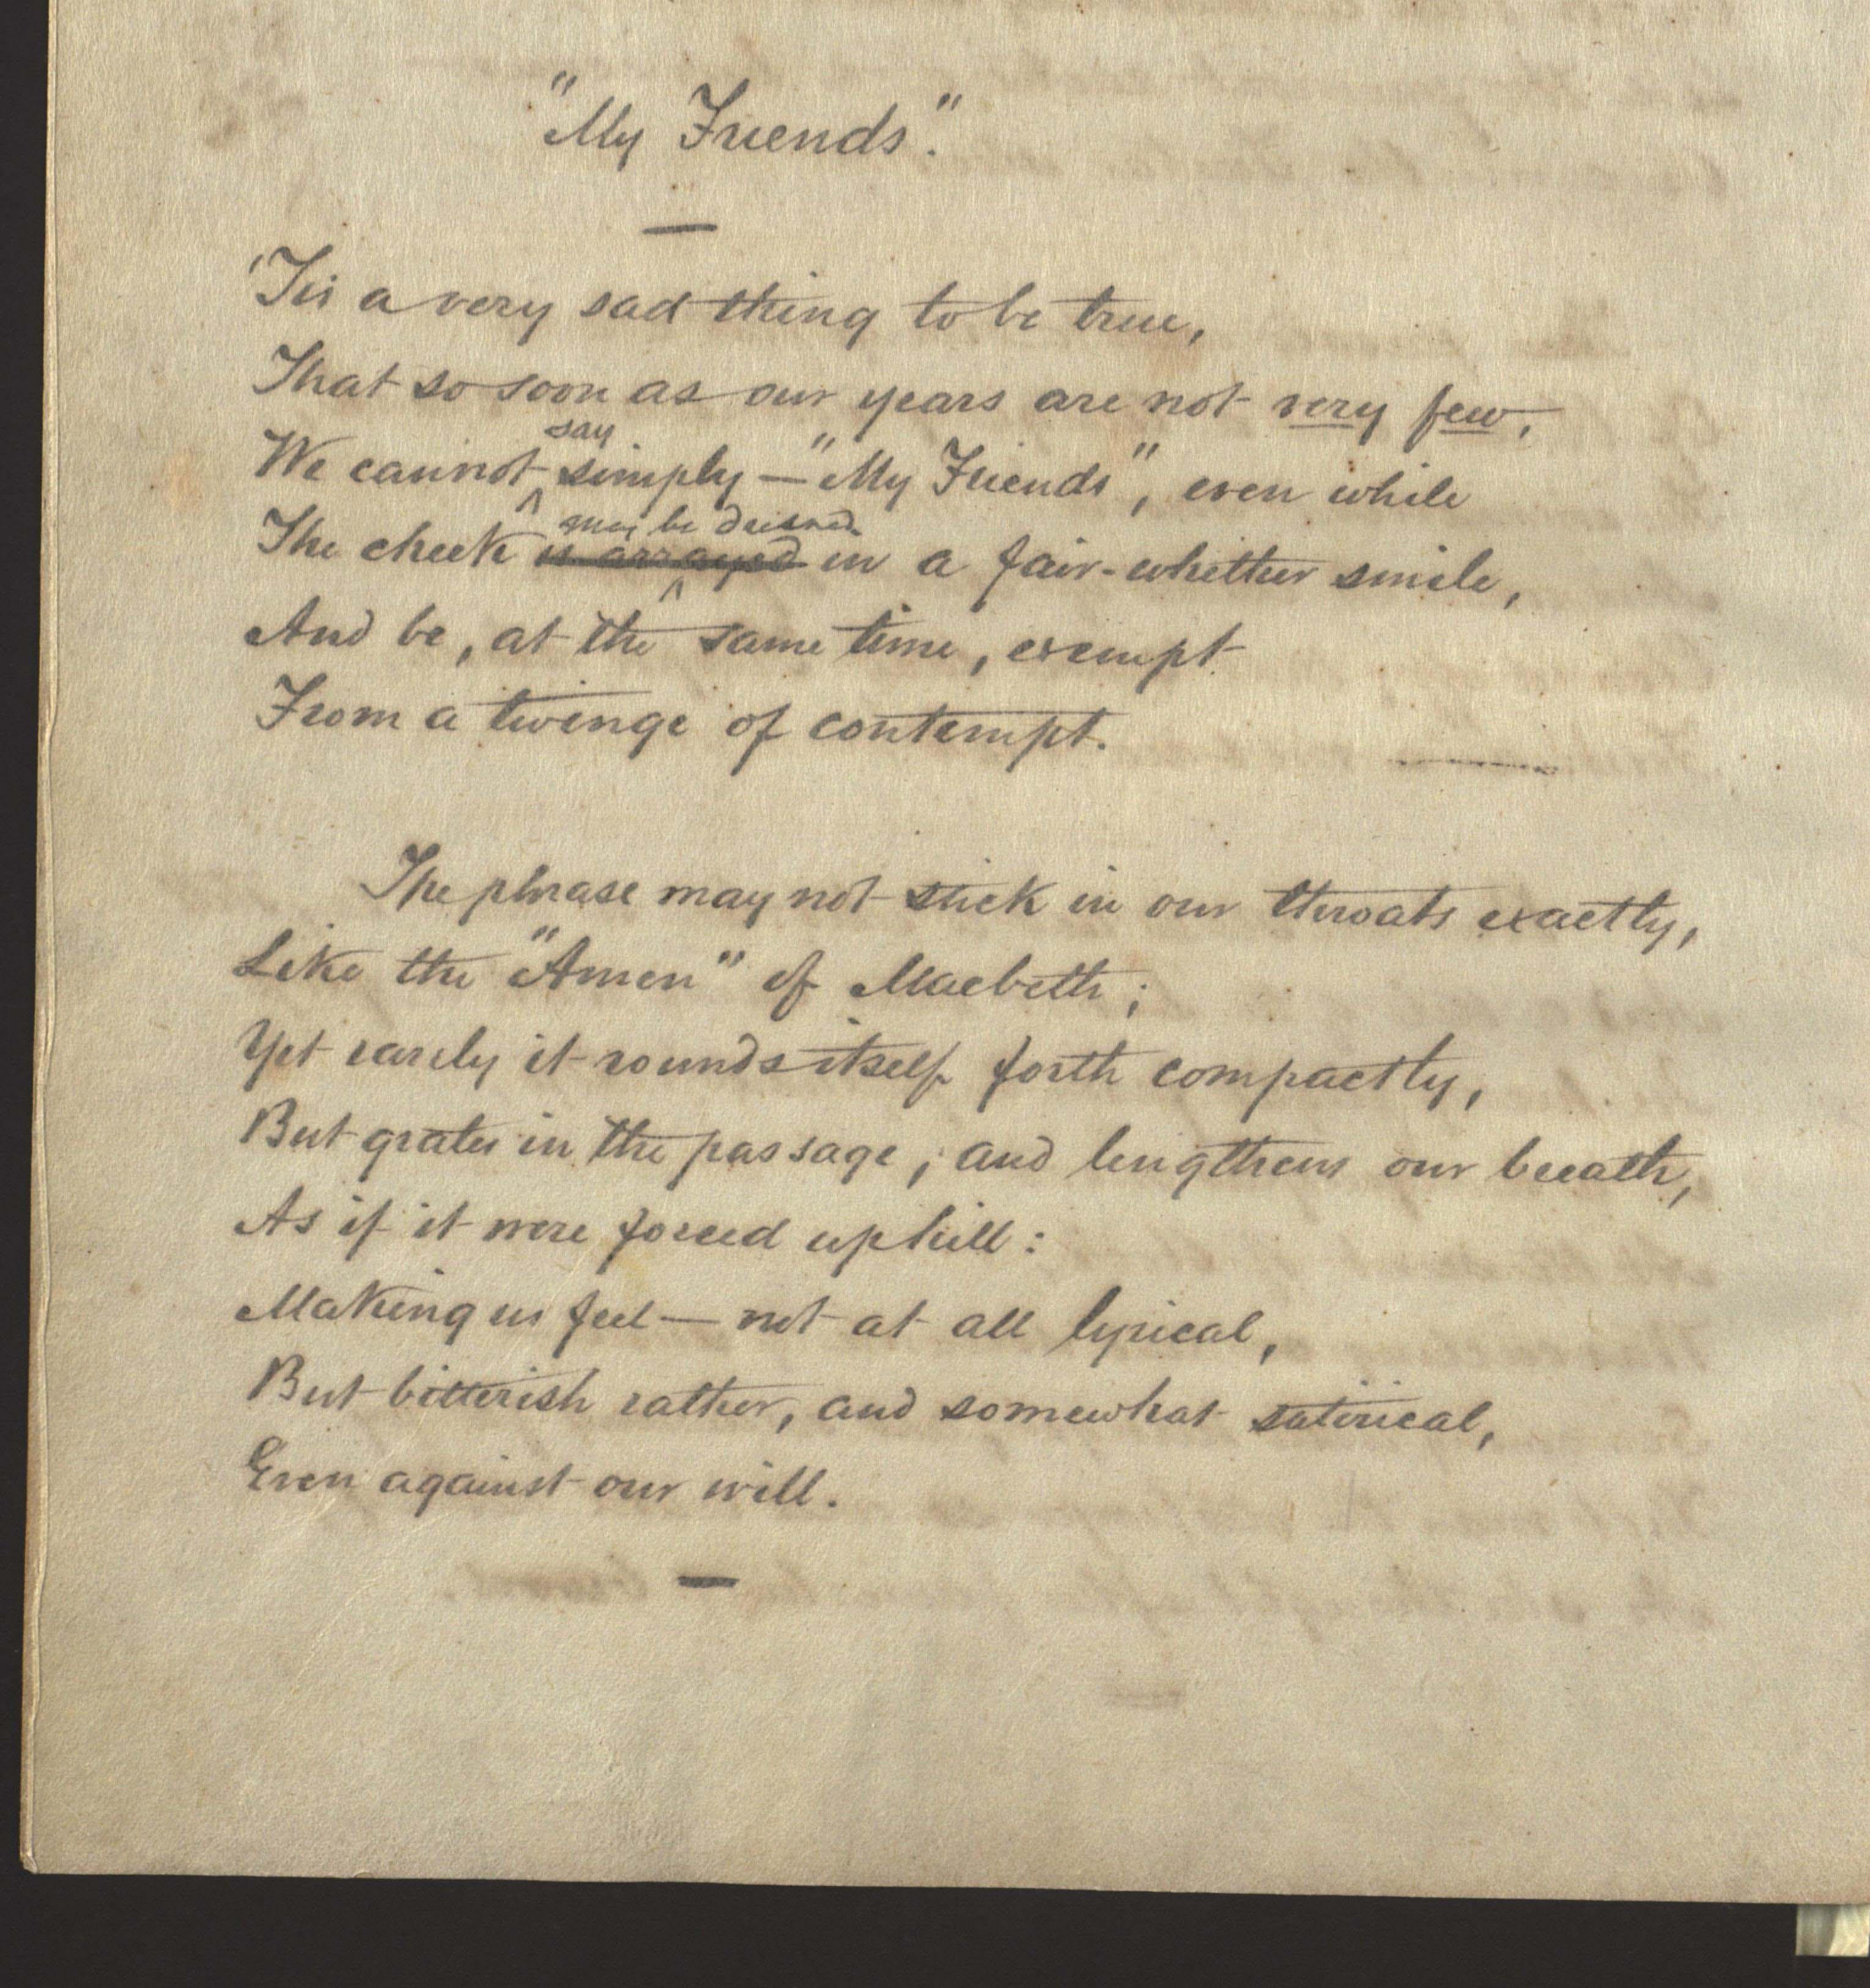 "My Friends".
'Tis a very sad thing to be true,
That so soon as our years are not very few,
We cannot say simply — "My Friends", even while
The cheek may be dressed in a fair-whether smile,
And be, at the same time, exempt
From a twinge of contempt.
The phrase may not stick in our throats exactly,
Like the "Amen" of Macbeth;
Yet rarely it rounds itself forth compactly,
But grates in the passage, and lengthens our breath,
As if it were forced uphill:
Making us feel — not at all lyrical,
But bitterish rather, and somewhat satirical,
Even against our will.